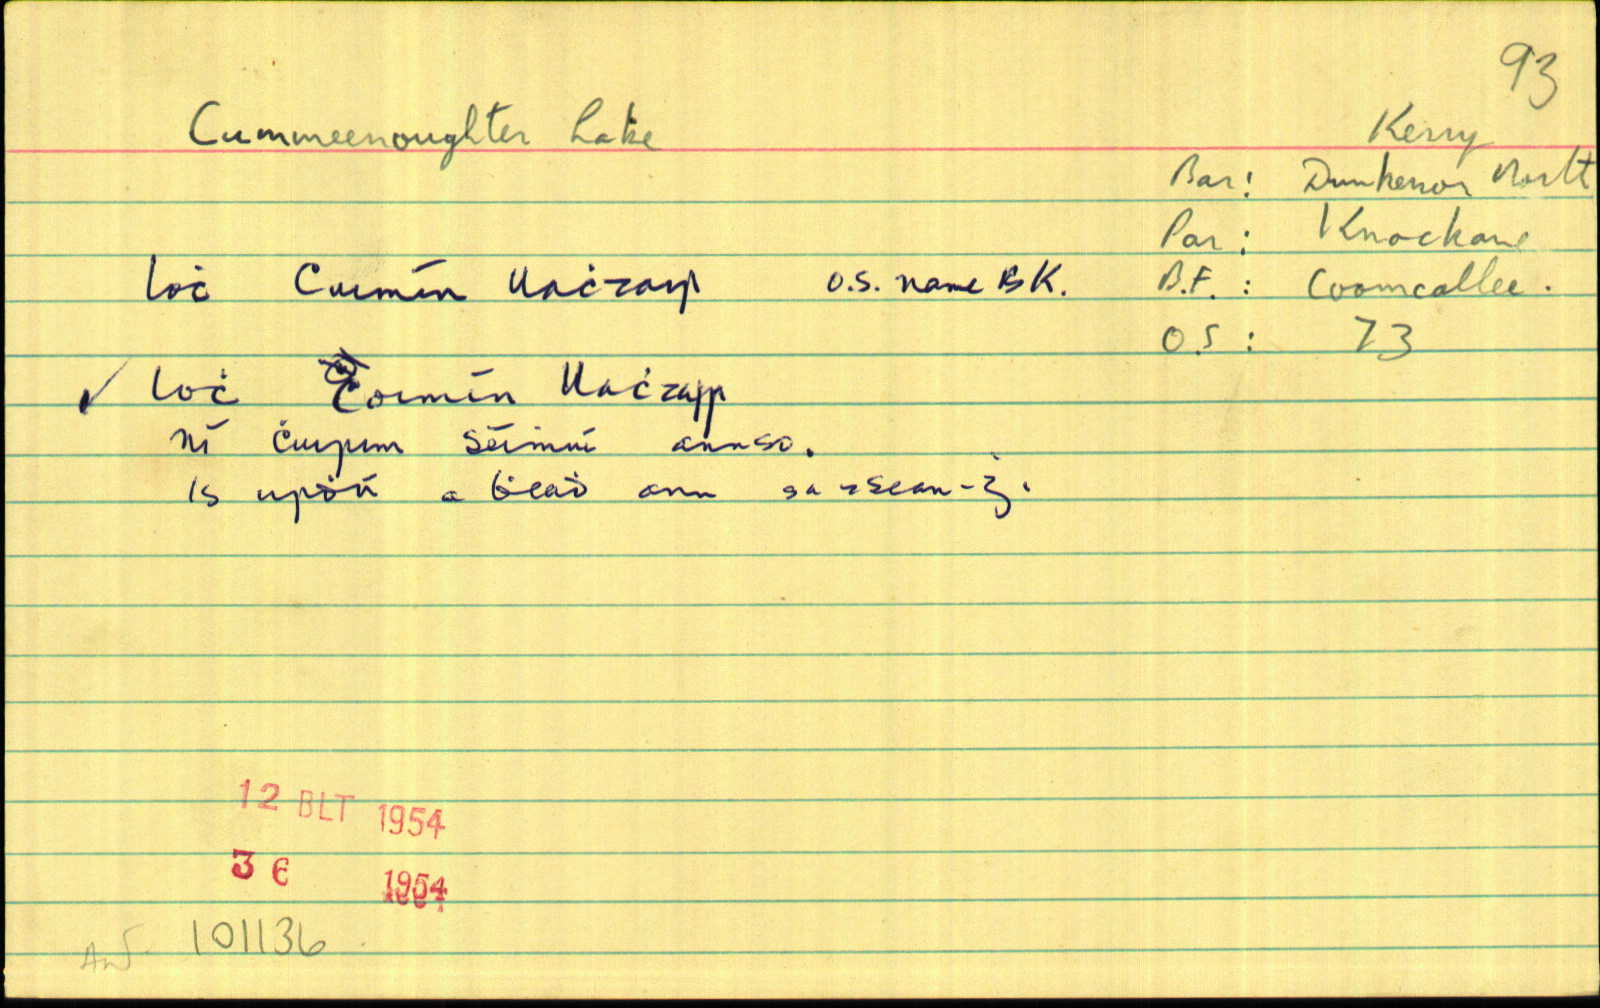 93
Cummeenoughter Lake
Kerry
Bar: Dunkerron North
Par: Knockane
Loċ Cuimín Uaċtair O.S. name BK. B.F.: Coomcallee.
O.S: 73
✓ Loċ Coimín Uaċtair
ní ċuirim séimiú annso.
is uiri a ḃeaḋ ann sa tsean-
12 BLT 1954
36 1954
101136